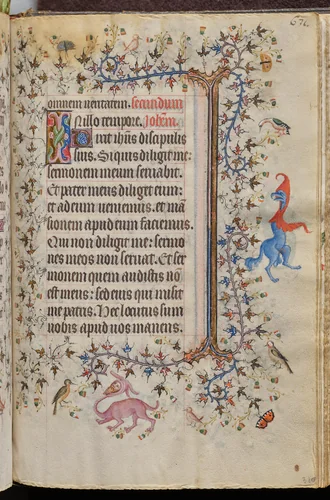 omnem ueritatem. secundum
In illo tempore. Johem.
Dixit ihus discipulis
suis. Si quis diligit me:
sermonem meum seruabit.
Et pater meus diliget eum:
et ad eum ueniemus. et mā
sionem apud eum faciemus.
Qui non diligit me: sermo
nes meos non seruat. Et ser
monem quem audistis nō
est meus: sed eius qui misit
me patris. Hec locutus sum
uobis apud uos manens.